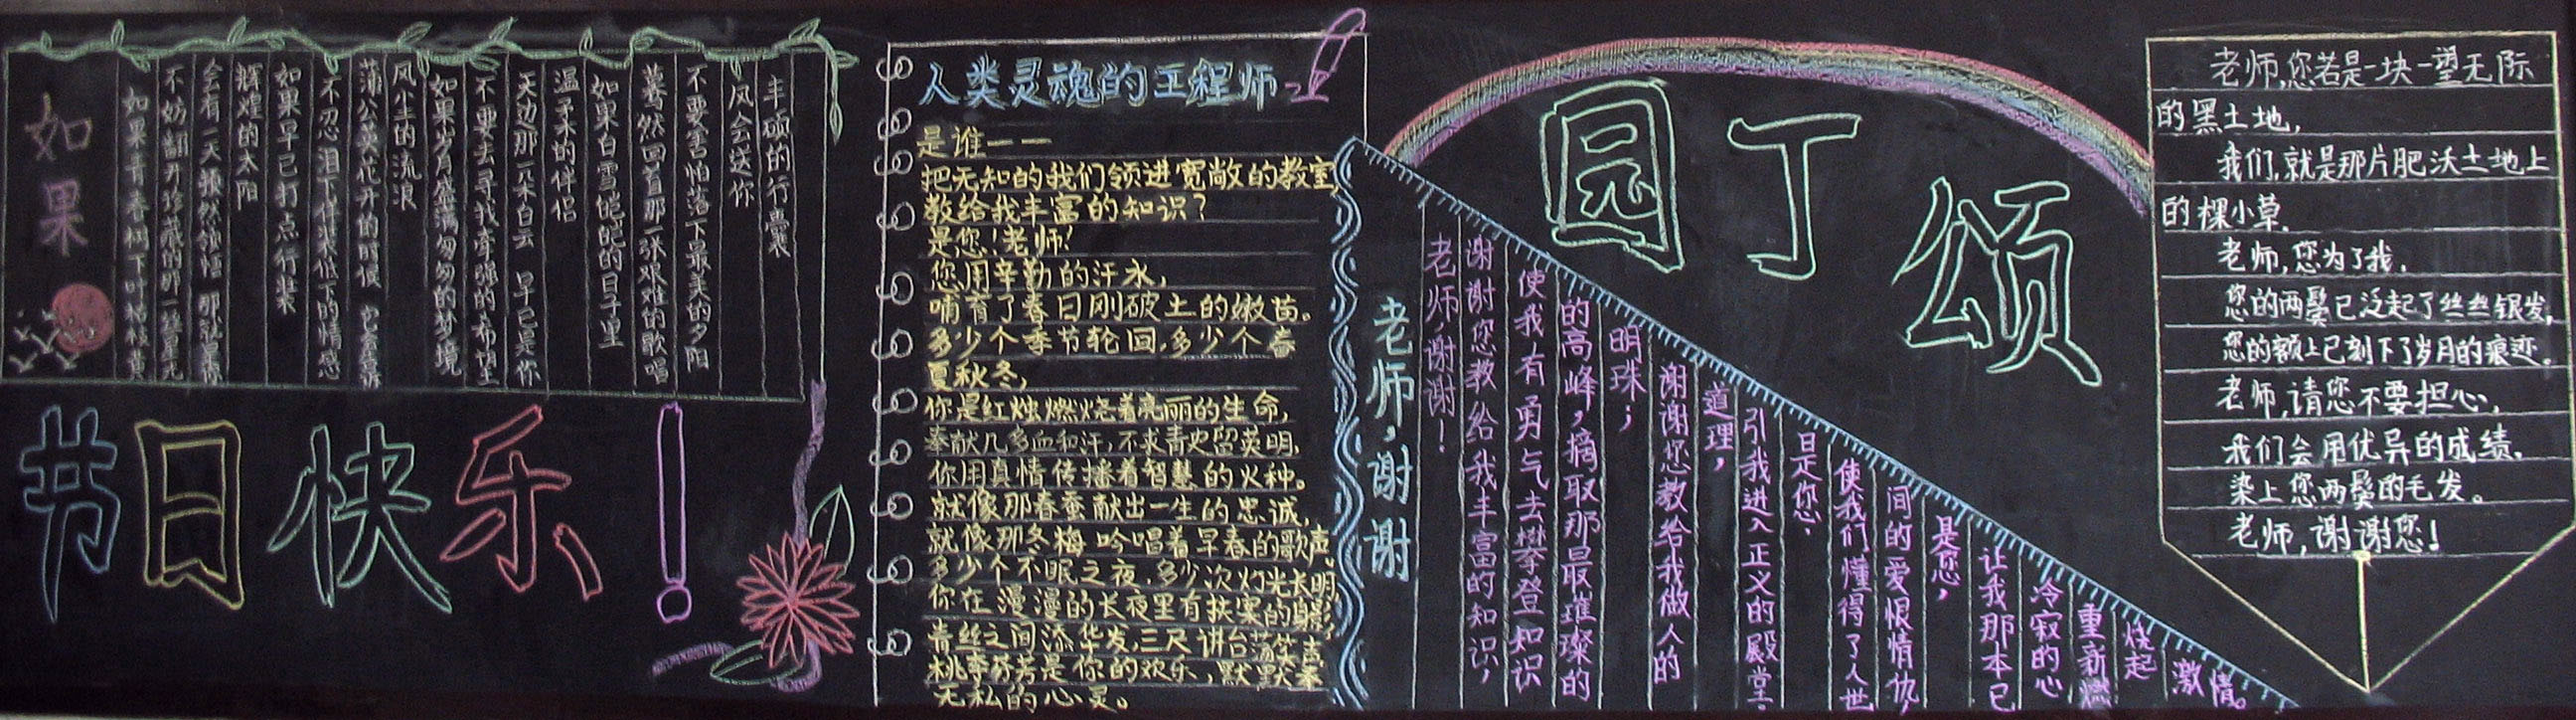 如果
如果青春树下叶枯枝黄
不妨翻开珍藏的那一
会有一天
辉煌的太阳
如果早已打点行装
不忍泪下
蒲公英花开的时候
风尘的流浪
如果岁月盛满匆匆的梦境
不要去寻我牵强的希望
天边那一朵白云 早已是你
温柔的伴侣
如果白雪皑皑的日子里
蓦然回首那一张艰难的歌唱
不要害怕落下最美的夕阳
风会送你
丰硕的行囊
节日快乐!
人类灵魂的工程师
是谁——
把无知的我们领进宽敞的教室,
教给我丰富的知识?
是您!老师!
您用辛勤的汗水,
哺育了春日刚破土的嫩苗。
多少个季节轮回,多少个春
夏秋冬,
你是红烛燃烧着亮丽的生命,
奉献几多血和汗,不求青史留英明,
你用真情传播着智慧的火种。
就像那春蚕献出一生的忠诚,
就像那冬梅吟唱着早春的歌声。
多少个不眠之夜,多少次灯光长明,
你在漫漫的长夜里有扶案的身影,
青丝之间添华发,三尺讲台荡笑声
桃李芬芳是你的欢乐,默默
无私的心灵。
园丁颂
老师,谢谢
老师,谢谢!
谢谢您教给我丰富的知识,
使我有勇气去攀登知识
的高峰,摘取那最璀璨的
明珠;
谢谢您教给我做人的
道理,
引我进入正义的殿堂。
是您,
使我们懂得了人世
间的爱恨情仇,
是您,
让我那本已
冷寂的心
重新燃
烧起
激情。
老师,您若是一块一望无际
的黑土地,
我们,就是那片肥沃土地上
的棵小草.
老师,您为了我,
您的两鬓已泛起了丝丝银发,
您的额上已刻下了岁月的痕迹。
老师,请您不要担心,
我们会用优异的成绩,
染上您两鬓的毛发。
老师,谢谢您!